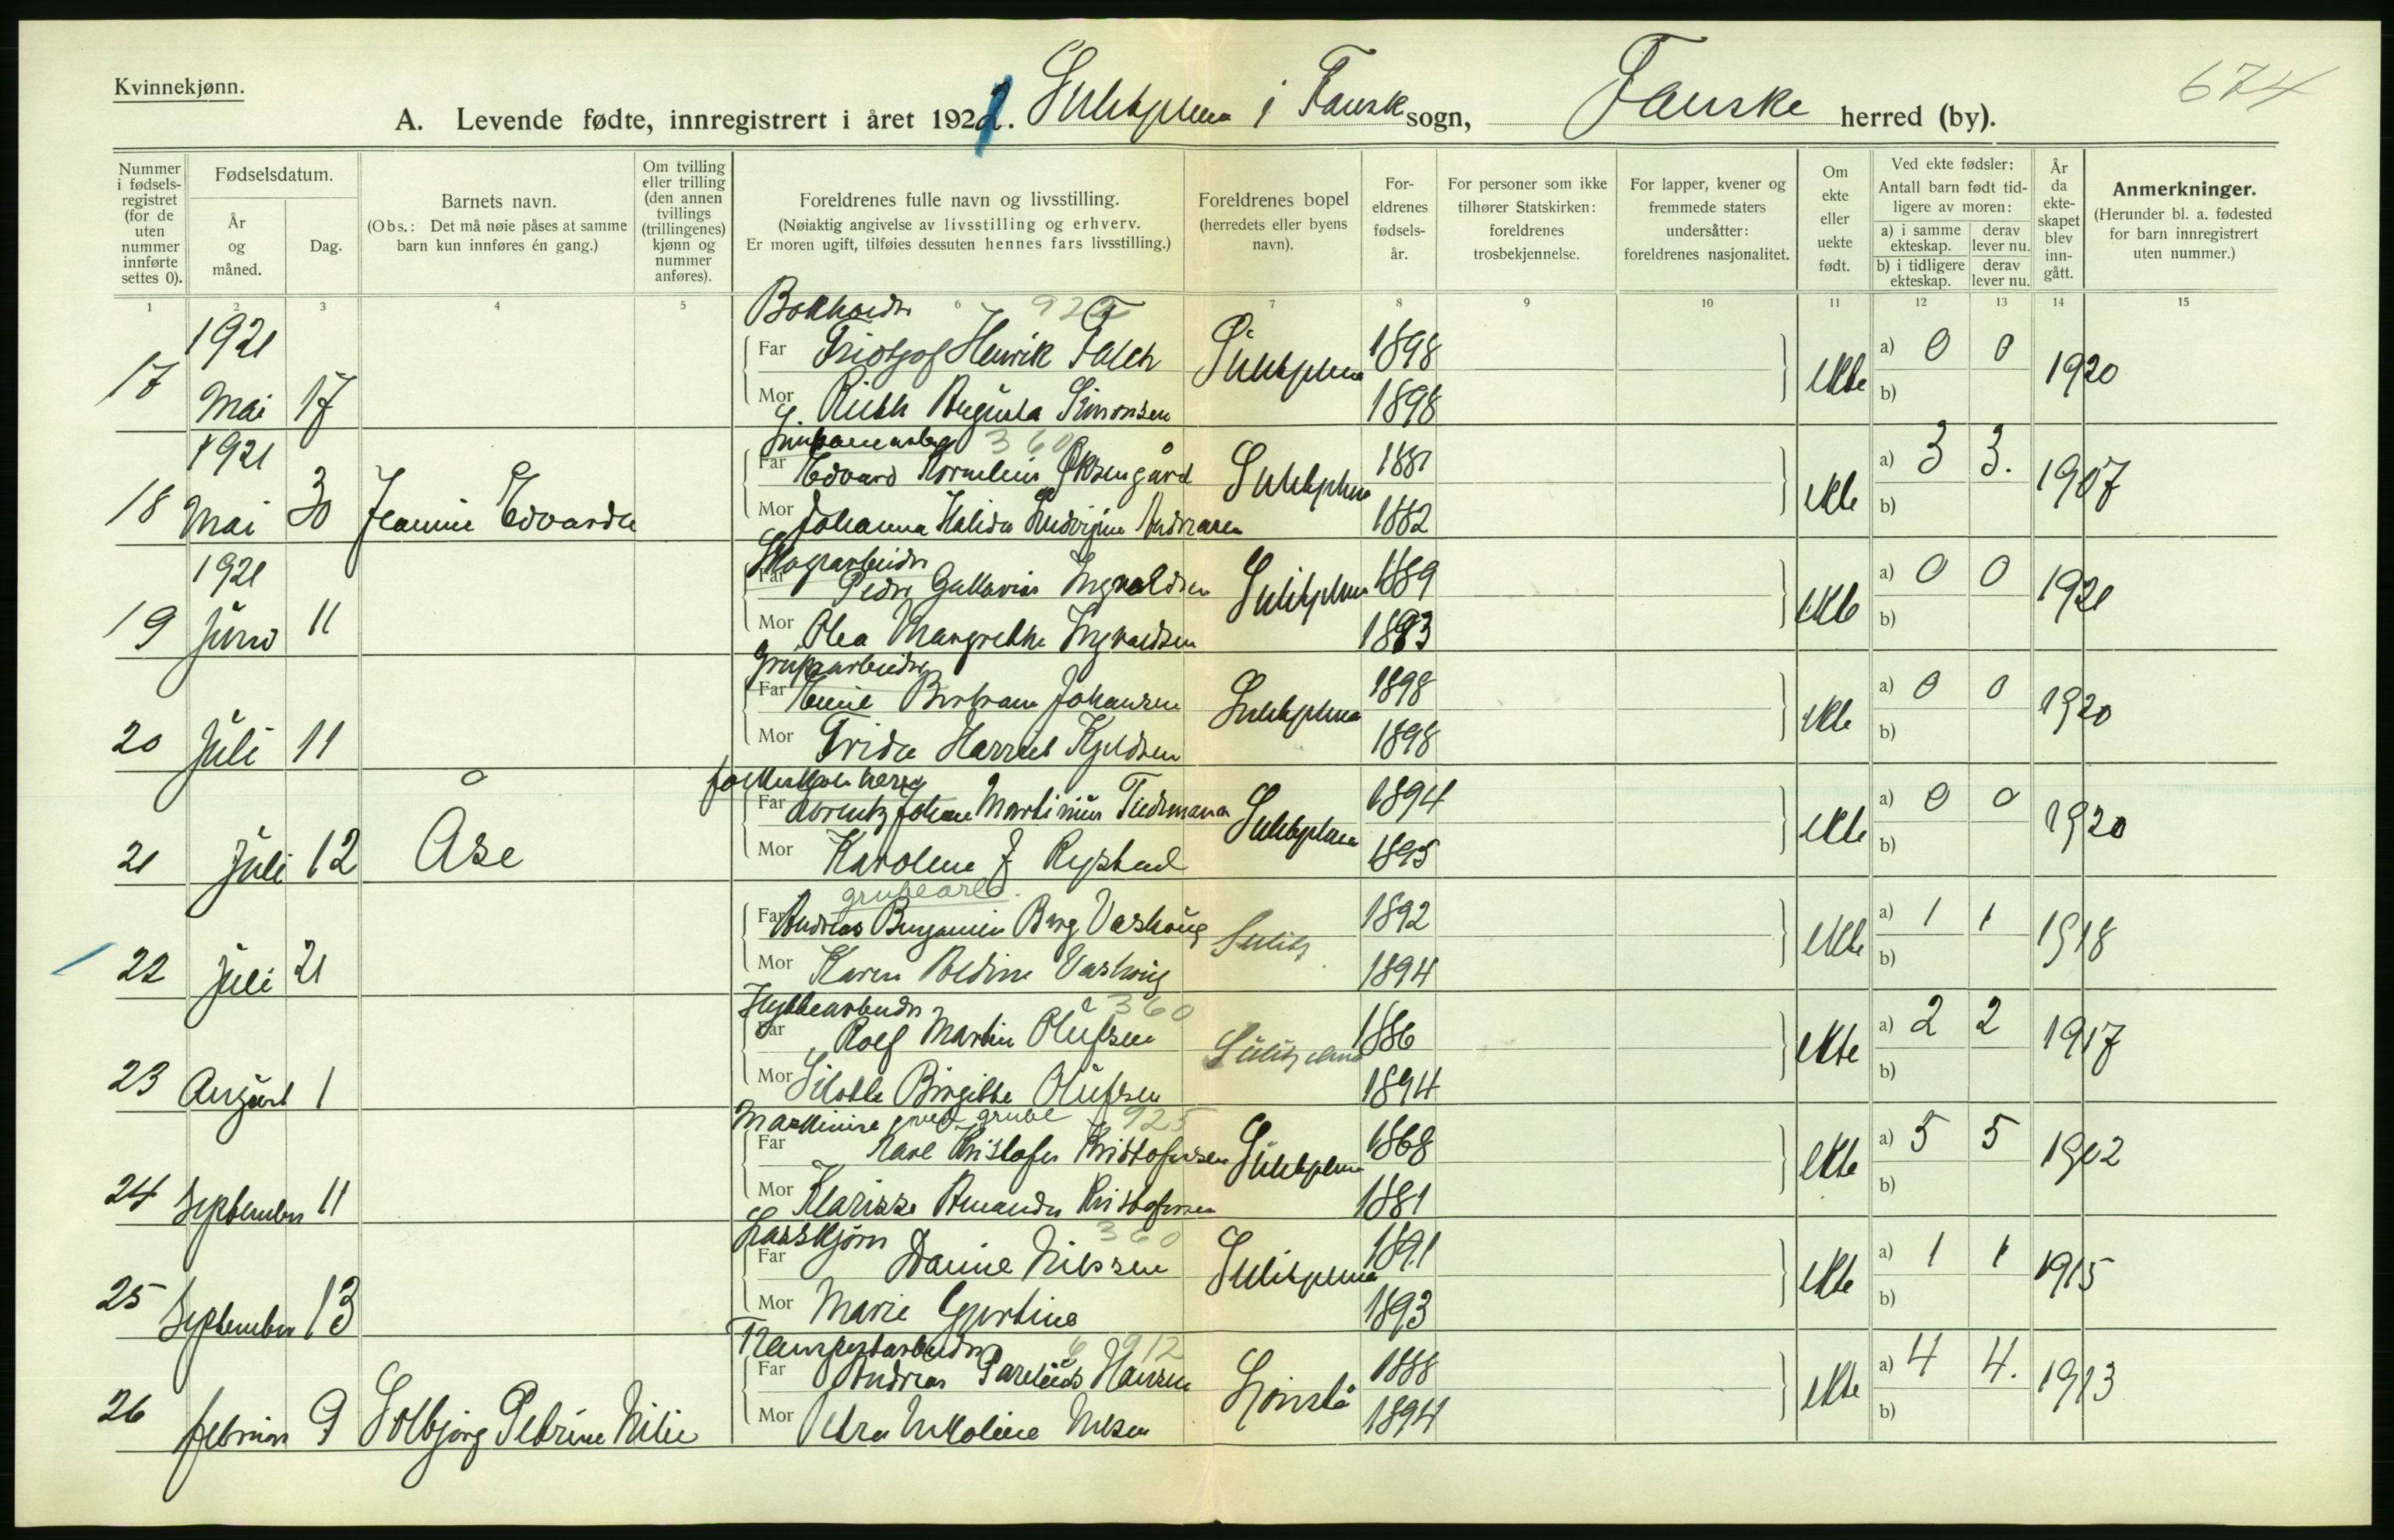 Kvinnekjønn.
674
A. Levende fødte, innregistrert i året 1921. Sulitjelma i Fauske sogn, Fauske herred (by).
Nummer i fødsels-registret (for de uten nummer innførte settes 0).
Fødselsdatum.
År og måned.
Dag.
Barnets navn.
(Obs.: Det må nøie påses at samme barn kun innføres én gang.)
Om tvilling eller trilling (den annen tvillings (trillingenes) kjønn og nummer anføres).
Foreldrenes fulle navn og livsstilling.
(Nøiaktig angivelse av livsstilling og erhverv.
Er moren ugift, tilføies dessuten hennes fars livsstilling.)
Foreldrenes bopel (herredets eller byens navn).
For-eldrenes fødsels-år.
For personer som ikke tilhører Statskirken: foreldrenes trosbekjennelse.
For lapper, kvener og fremmede staters undersåtter: foreldrenes nasjonalitet.
Om ekte eller uekte født.
Ved ekte fødsler:
Antall barn født tid-ligere av moren:
a) i samme ekteskap.
derav lever nu.
b) i tidligere ekteskap.
derav lever nu.
År da ekte-skapet blev inn-gått.
Anmerkninger.
(Herunder bl. a. fødested for barn innregistrert uten nummer.)
1 2 3 4 5 6 7 8 9 10 11 12 13 14 15
Bokholder
1921 Far Fridtjof Henrik Falch Sulitjelma 1898 a) 0 0
17 Mai 17 Mor Ruth Augusta Simonsen 1898 ekte b) 1920
360
1921 Far Edvard Kornelius Øksengård Sulitjelma 1881 a) 3 3.
18 Mai 30 Jeannie Edvarda Mor Johanna Halida Ludvigine Andreasen 1882 ekte b) 1907
Skograrbeider
1921 Far Peder Gullavias Ingvaldsen Sulitjelma 1889 a) 0 0
19 Juno 11 Mor Olea Margrethe Ingvaldsen 1893 ekte b) 1921
Grubearbeider
Far Emil Bertram Johansen Sulitjelma 1898 a) 0 0
20 Juli 11 Mor Frida Harriet Kjeldsen 1898 ekte b) 1920
folkeskolelærer
Far Lorentz Johan Martinius Tiedemann Sulitjelma 1894 a) 0 0
21 Juli 12 Åse Mor Karoline J Rystad 1895 ekte b) 1920
grubearb.
Far Andreas Benjamin Berg Vashaug Sulitj. 1892 a) 1 1
22 Juli 21 Mor Karen Poldine Vashaug 1894 ekte b) 1918
Hyttearbeider 360
Far Rolf Martin Olufsen Sulitjelma 1886 a) 2 2
23 August 1 Mor Birgitte Olufsen 1894 ekte b) 1917
Maskinist ved grube 925
Far Karl Kristofer Kristofersen Sulitjelma 1868 a) 5 5
24 September 11 Mor Klarisse Amanda Kristofersen 1881 ekte b) 1902
Lasskjører 360
Far Daniel Nilssen Sulitjelma 1891 a) 1 1
25 September 13 Mor Marie Gjertine 1893 ekte b) 1915
Transportarbeider 912
Far Andreas Parelius Hansen Lønså 1888 a) 4 4.
26 februar 9 Solbjørg Petrine Nilie Mor Petra Nikoline Nilsen 1894 ekte b) 1913